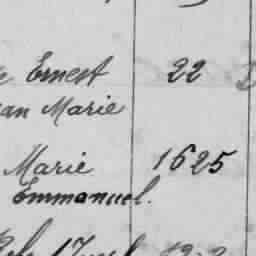 Ernest 22
an Marie
Marie 1625
Emmanuel.